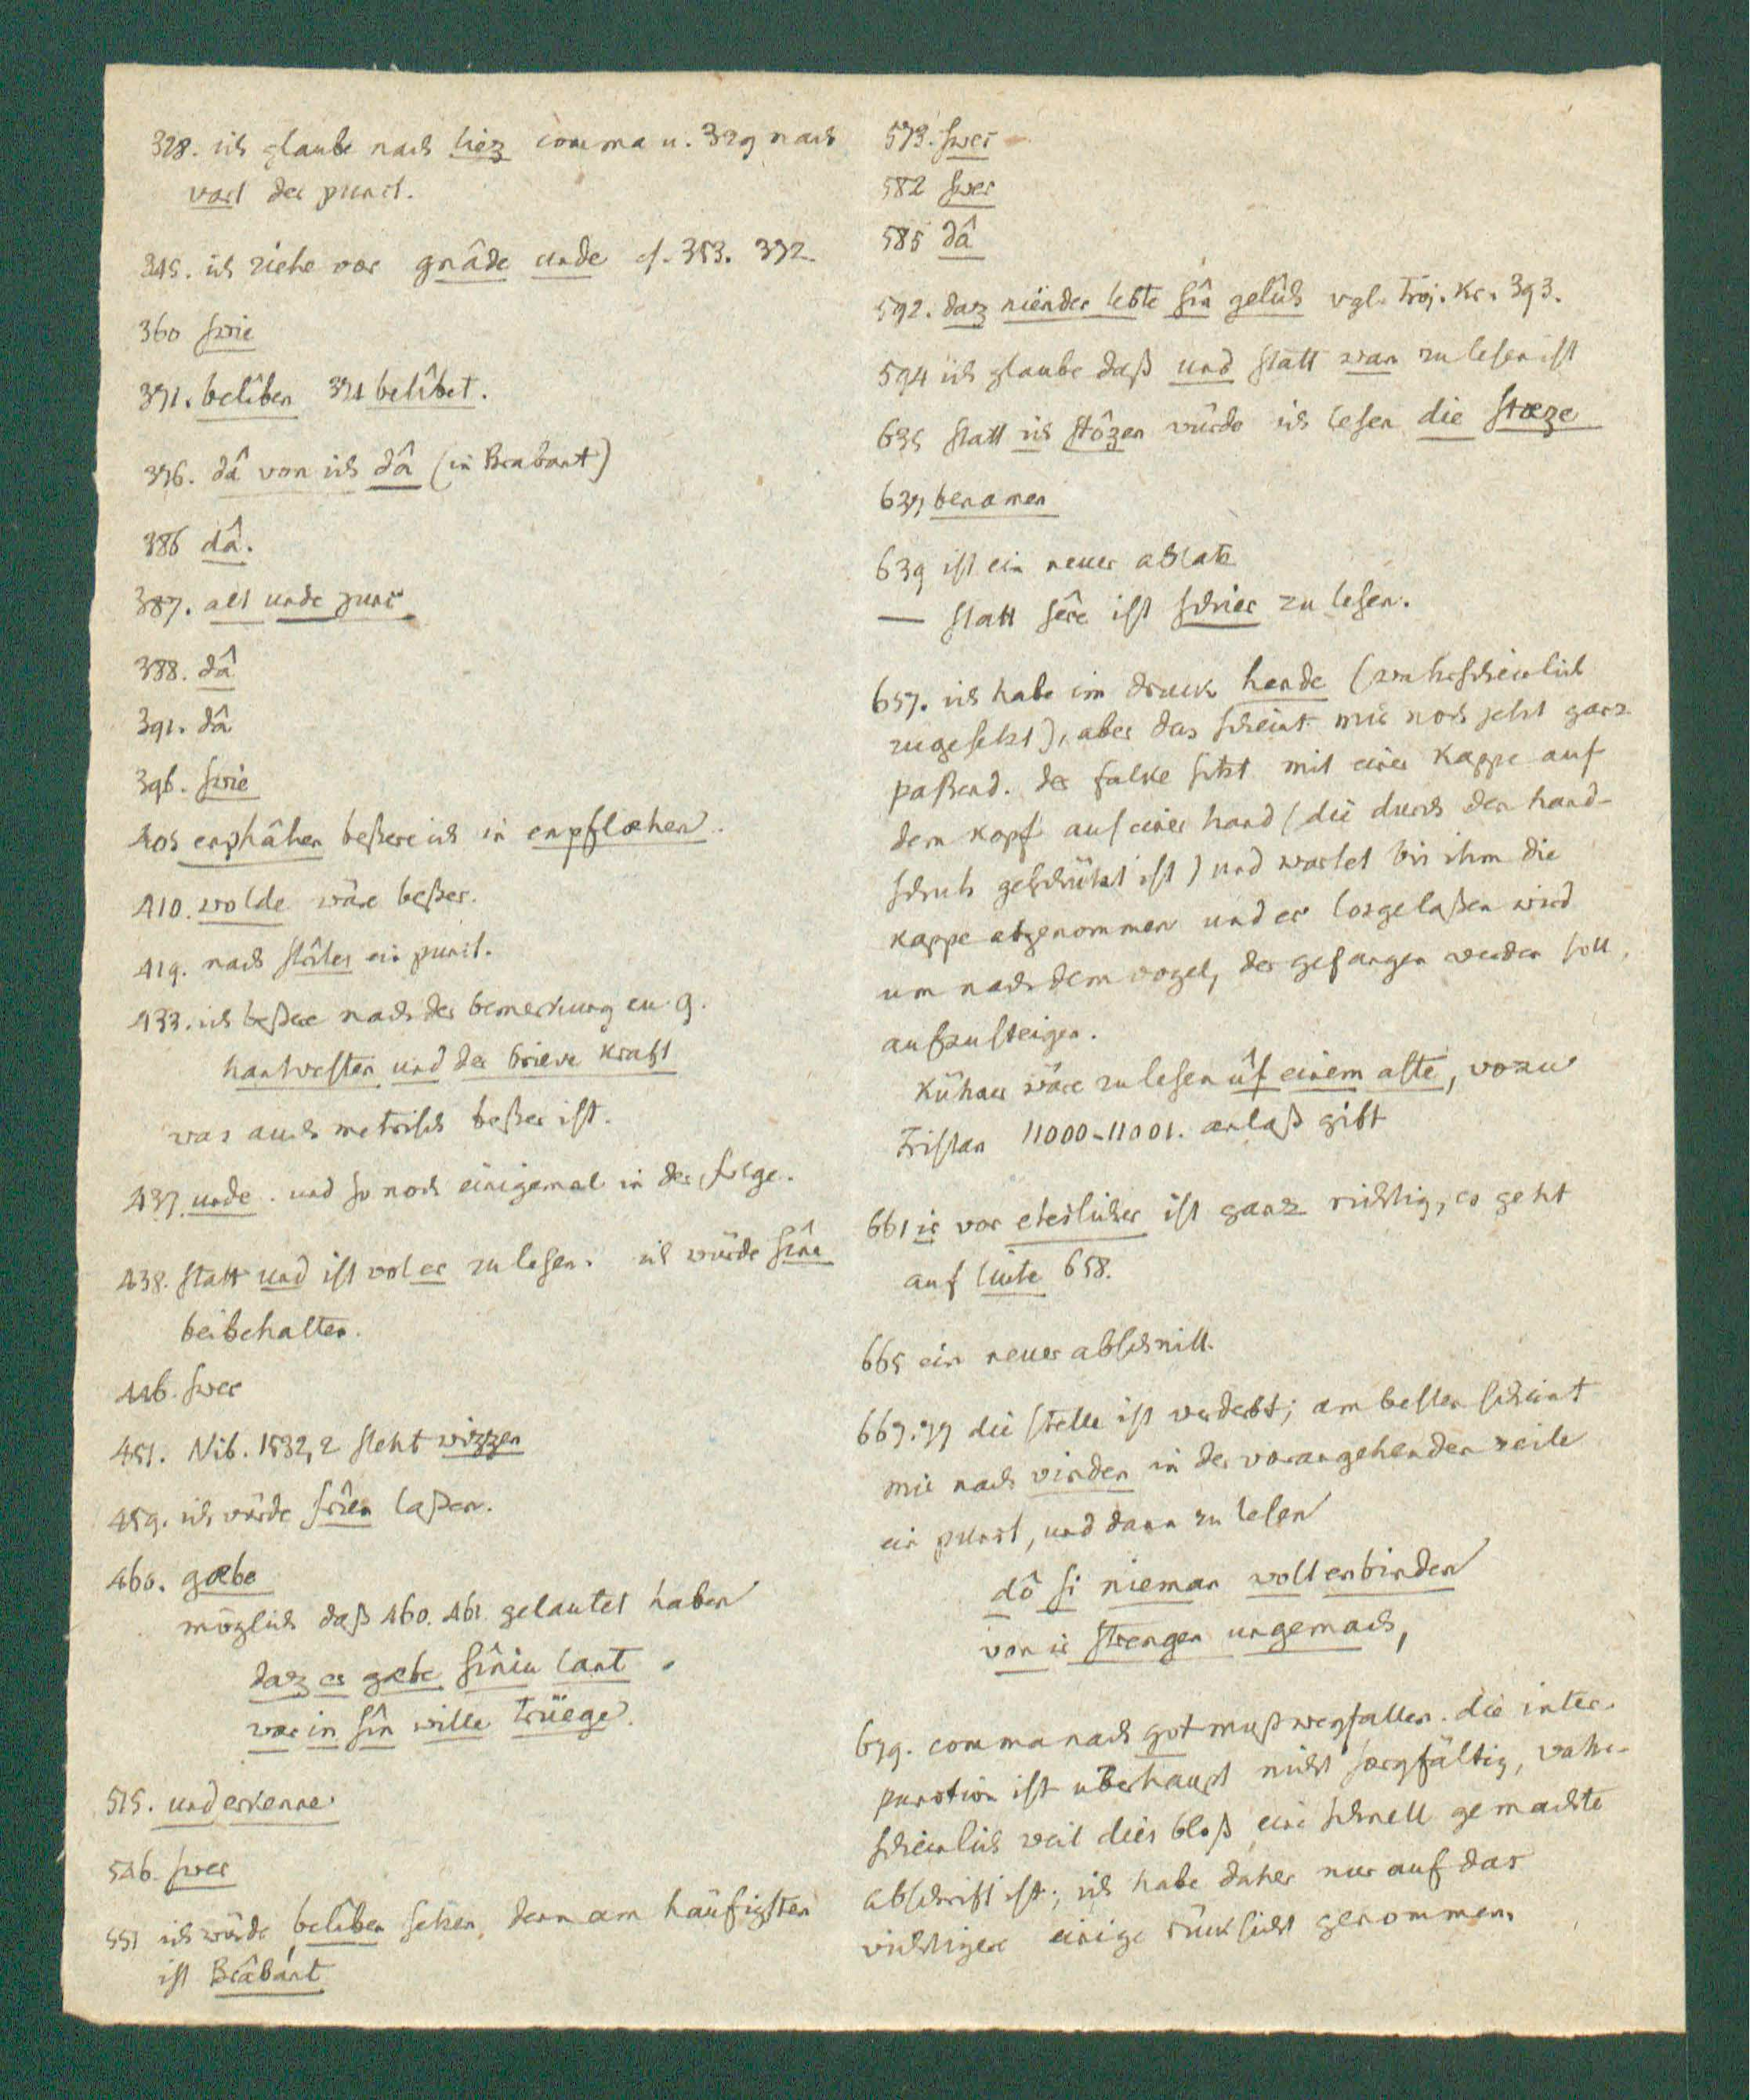 328. ich glaube nach liez comma u. 329 nach
vart der punct.
345. ich ziehe vor gnâde unde cf. 353. 372.
360 swie
371. belîben 371 belîbet.
376. dâ von ich dâ (in Brabant)
386 dâ.
387. alt unde junc
388. dâ
391. dâ
396. swie
405 enphâhen beßere ich in enpflœhen.
410. wolde wäre beßer.
419. nach stætes ein punct.
433. ich beßere nach der bemerkung zu g.
hantvesten und der brieve kraft
was auch metrisch beßer ist.
437. unde. und so noch einigemal in der folge.
438. statt und ist wol er zu lesen. ich würde sîne
beibehalten.
446. swer
451. Nib. 1532,2 steht wizzen
459. ich würde frîen laßen.
460. gæbe
möglich daß 460. 461 gelautet haben
daz er gæbe sîniu lant
war in sîn wille trüege.
515. und erkenne
546. swer
551 ich würde belîben setzen, denn am häufigsten
ist Brâbant
573. swer
582 swer
585 dâ
592. daz niender lebte sîn gelîch vgl. Troj. Kr. 393.
594 ich glaube daß und statt wan zu lesen ist
635 statt ich stôzen würde ich lesen die stœze
637 benamen
639 ist ein neuer absatz
— statt sêre ist schrier zu lesen.
657. ich habe im druck hende (wahrscheinlich
zugesetzt), aber das scheint mir noch jetzt ganz
paßend. der falke sitzt mit einer Kappe auf
dem kopf auf einer hand (die durch den hand-
schuh geschützt ist) und wartet bis ihm die
kappe abgenommen und er losgelaßen wird
um nach dem vogel, der gefangen werden soll,
aufzusteigen.
Kühner wäre zu lesen ûf einem aste, wozu
Tristan 11000-11001. anlaß gibt
661 ir vor eteslicher ist ganz richtig, es geht
auf liute 658.
665 ein neuer abschnitt.
669.77 die stelle ist verderbt; am besten scheint
mir nach vinden in der vorangehenden zeile
ein punct, und dann zu lesen
dô si nieman wolt enbinden
von ir strengen ungemach,
679. comma nach got muß wegfallen. die inter-
punction ist überhaupt nicht sorgfältig, wahr-
scheinlich weil dies bloß eine schnell gemachte
abschrift ist; ich habe daher nur auf das
wichtigere einige rücksicht genommen.